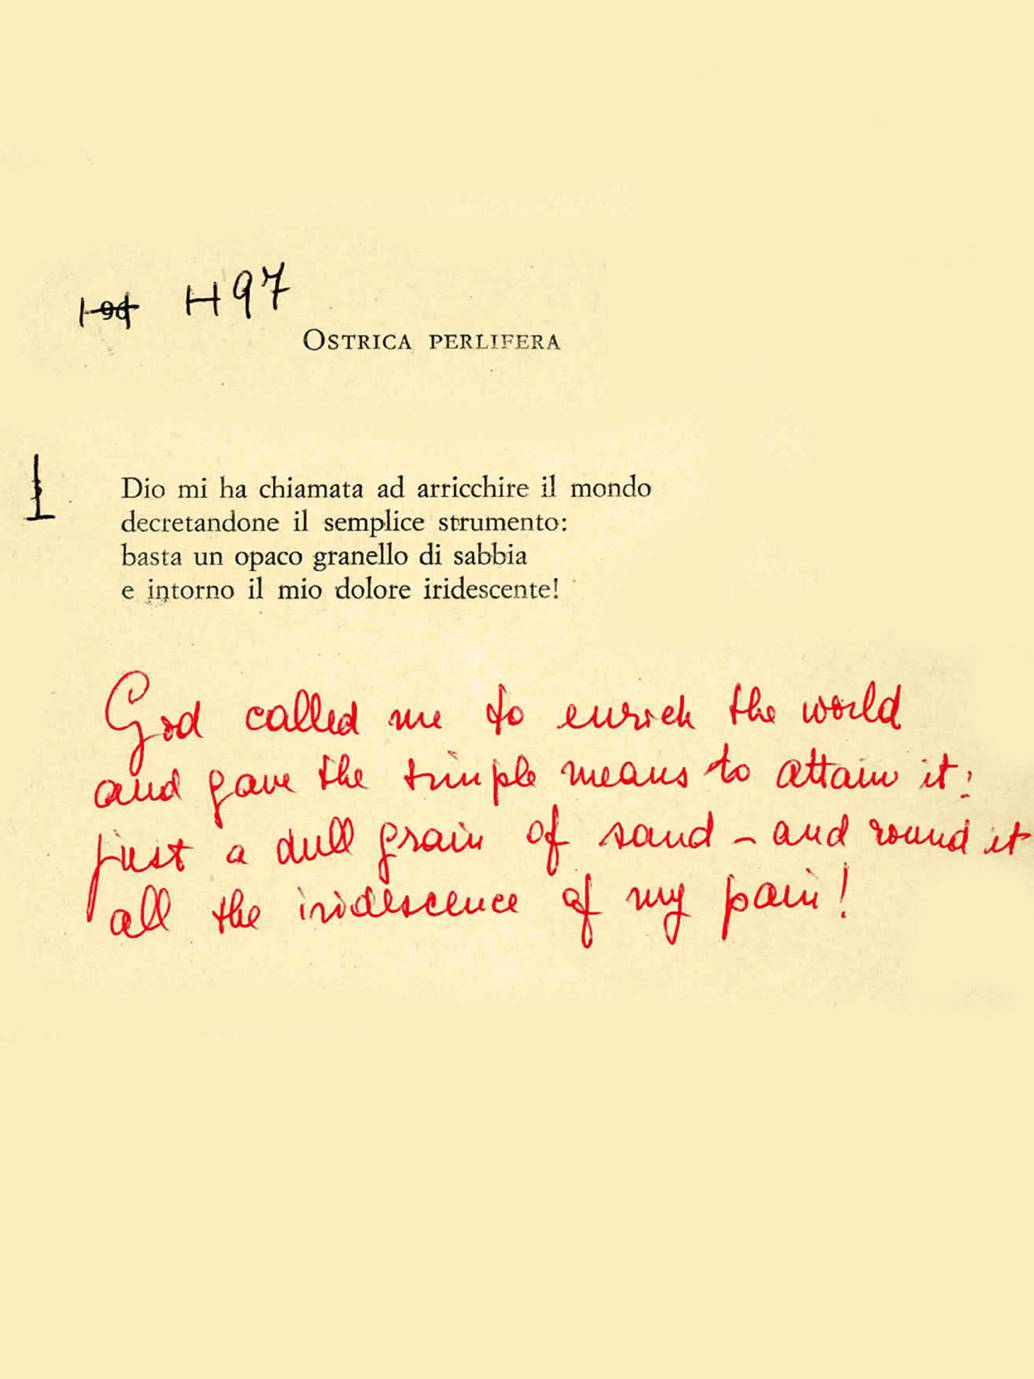 H97
OSTRICA PERLIFERA
Dio mi ha chiamata ad arricchire il mondo
decretandone il semplice strumento:
basta un opaco granello di sabbia
e intorno il mio dolore iridescente!
God called me to enrich the world
and gave the simple means to attain it:
just a dull grain of sand – and round it
all the iridescence of my pain!